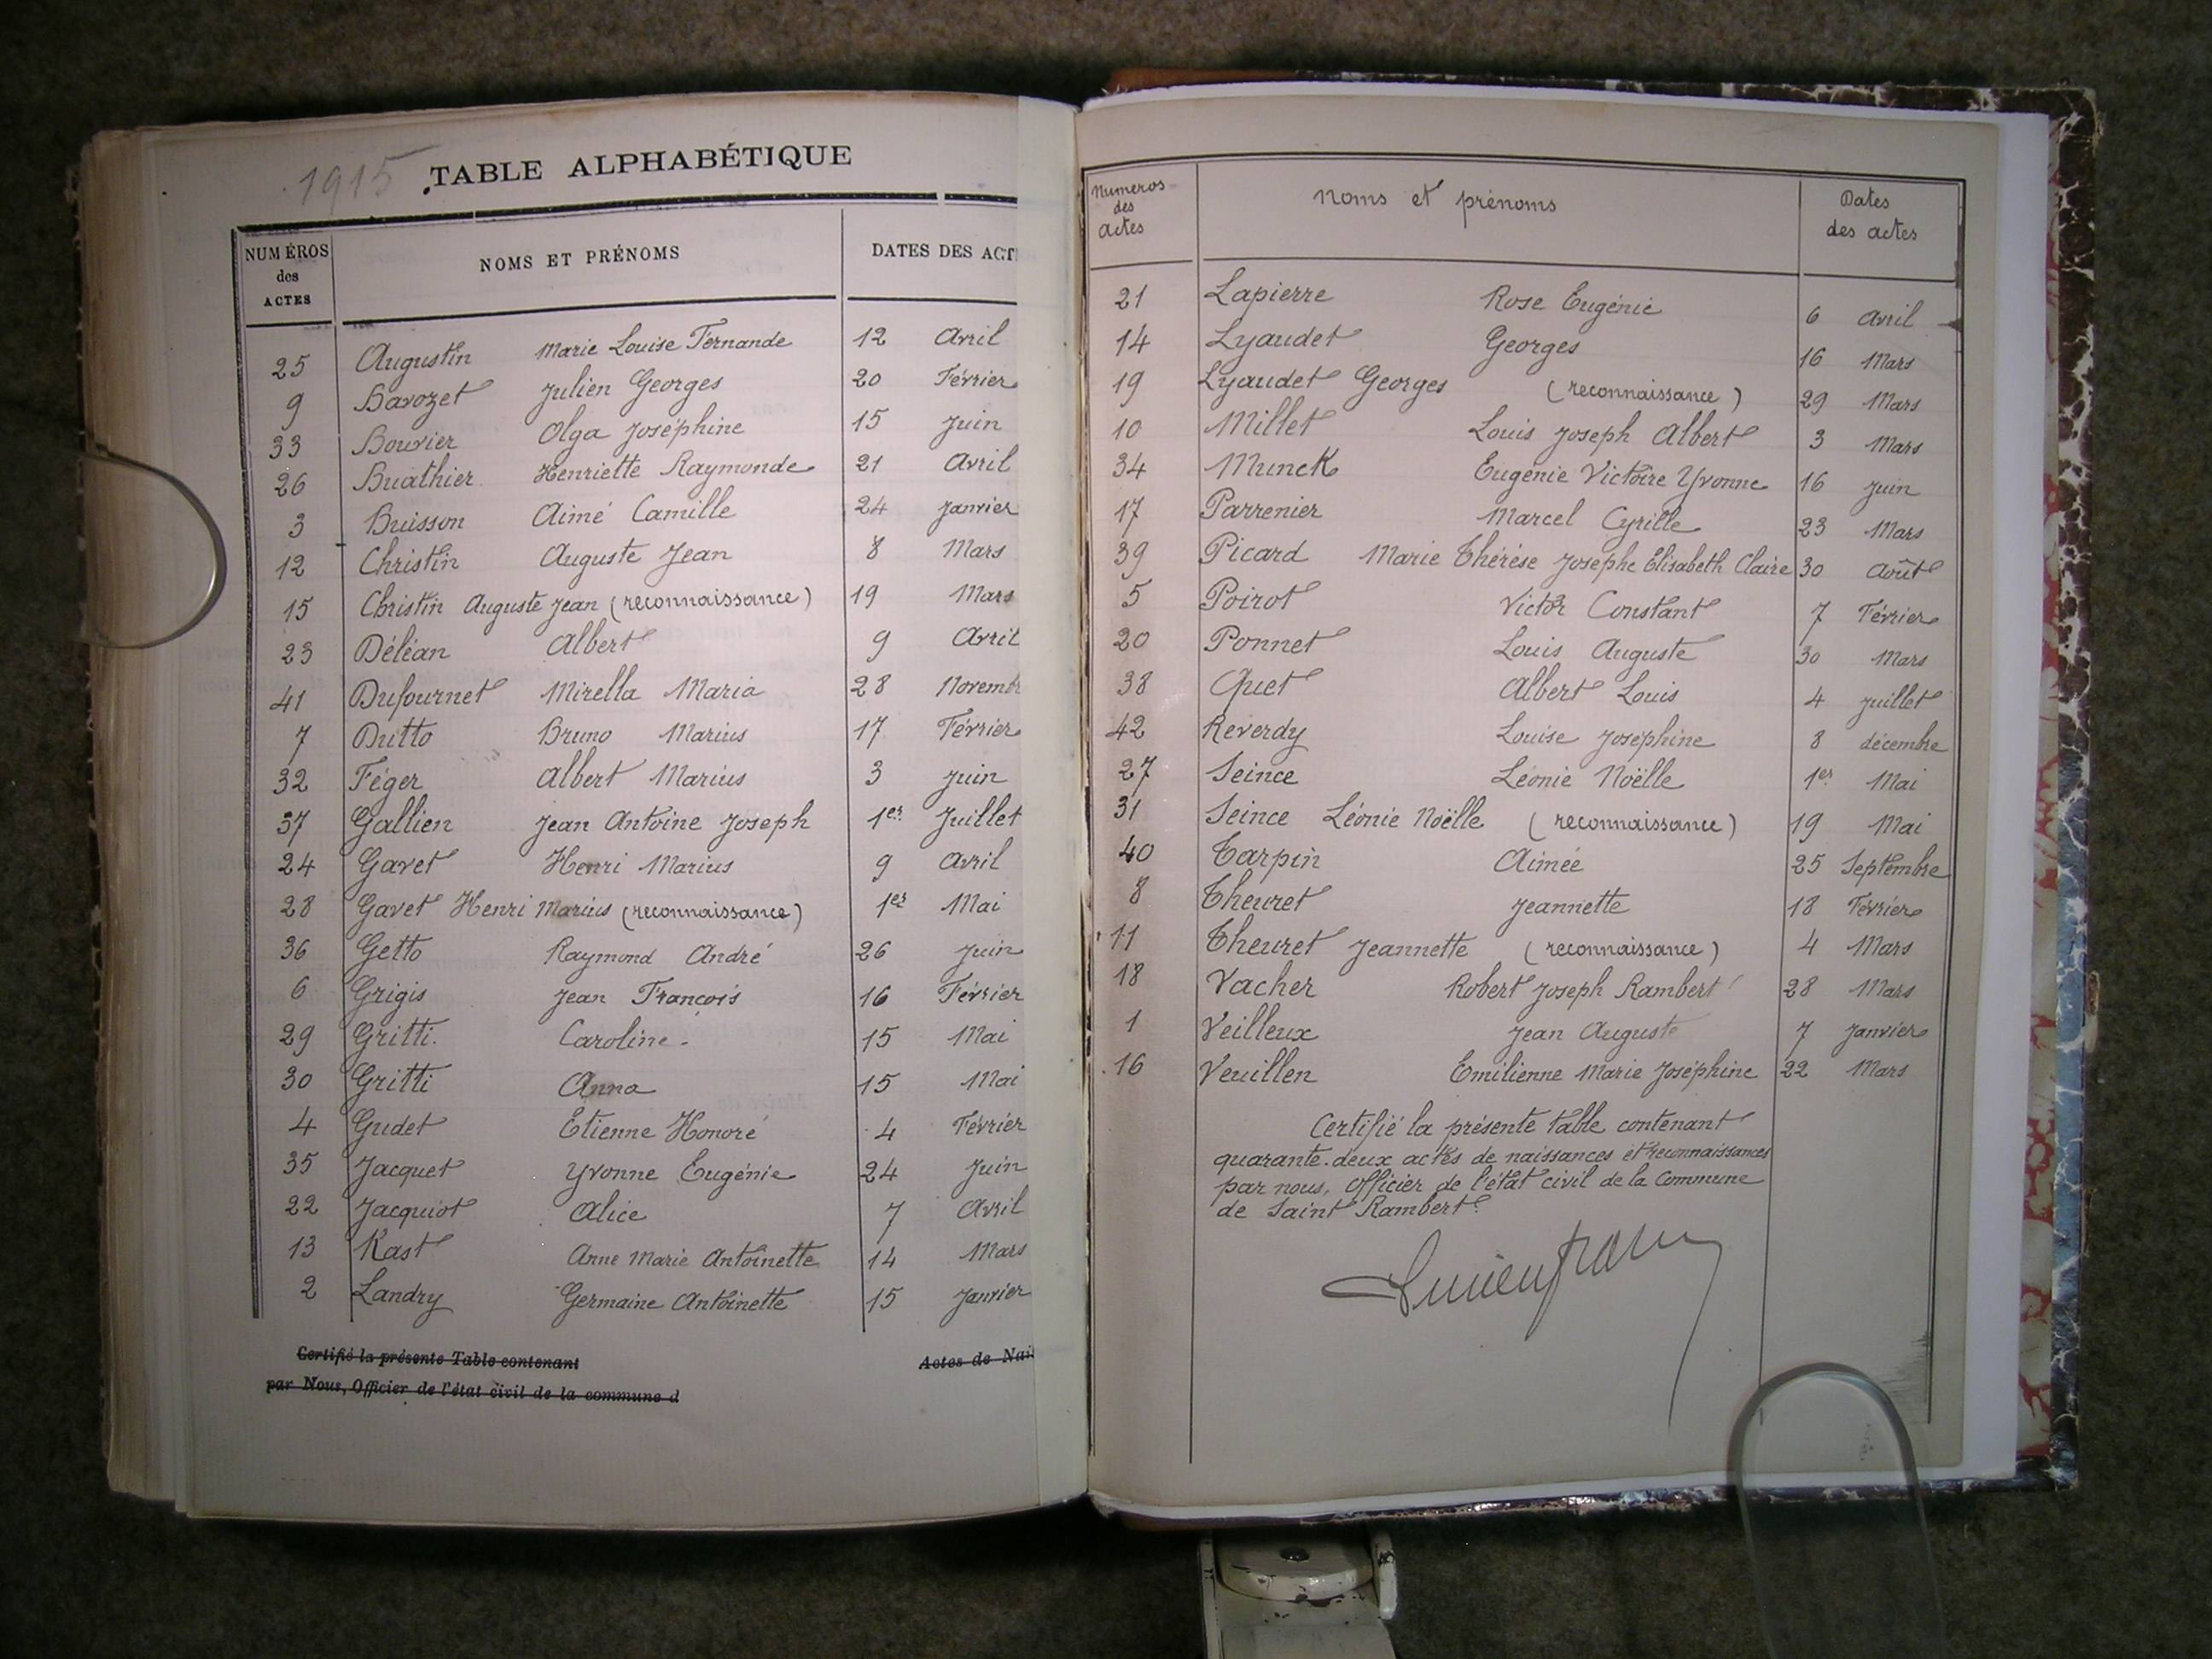 1915 TABLE ALPHABÉTIQUE
NUMÉROS des ACTES NOMS ET PRÉNOMS DATES DES ACT
25 Augustin Marie Louise Fernande 12 Avril
9 Bavozet Julien Georges 20 Février
33 Bouvier Olga Joséphine 15 Juin
26 Buathier Henriette Raymonde 21 Avril
3 Buisson Aimé Camille 24 Janvier
12 Christin Auguste Jean 8 Mars
15 Christin Auguste Jean (reconnaissance) 19 Mars
23 Déléan Albert 9 Avril
41 Dufournet Mirella Maria 28 Novemb
7 Dutto Bruno Marius 17 Février
32 Féger Albert Marius 3 Juin
37 Gallien Jean Antoine Joseph 1er Juillet
24 Gavet Henri Marius 9 Avril
28 Gavet Henri Marius (reconnaissance) 1er Mai
36 Getto Raymond André 26 Juin
6 Grigis Jean François 16 Février
29 Gritti Caroline 15 Mai
30 Gritti Anna 15 Mai
4 Gudet Etienne Honoré 4 Février
35 Jacquet Yvonne Eugénie 24 Juin
22 Jacquiot Alice 7 Avril
13 Kast Anne Marie Antoinette 14 Mars
2 Landry Germaine Antoinette 15 Janvier
Certifié la présente Table contenant Actes de Nai
par Nous, Officier de l'état civil de la commune d
Numéros des actes Noms et prénoms Dates des actes
21 Lapierre Rose Eugénie 6 Avril
14 Lyaudet Georges 16 Mars
19 Lyaudet Georges (reconnaissance) 29 Mars
10 Millet Louis Joseph Albert 3 Mars
34 Munck Eugénie Victoire Yvonne 16 Juin
17 Parrenier Marcel Cyrille 23 Mars
39 Picard Marie Thérèse Josephe Elisabeth Claire 30 Août
5 Poirot Victor Constant 7 Février
20 Ponnet Louis Auguste 30 Mars
38 Quet Albert Louis 4 Juillet
42 Reverdy Louise Joséphine 8 décembre
27 Seince Léonie Noëlle 1er Mai
31 Seince Léonie Noëlle (reconnaissance) 19 Mai
40 Tarpin Aimée 25 Septembre
8 Theuret Jeannette 18 Février
11 Theuret Jeannette (reconnaissance) 4 Mars
18 Vacher Robert Joseph Rambert 28 Mars
1 Veilleux Jean Auguste 7 Janvier
16 Veuillen Emilienne Marie Joséphine 22 Mars
Certifié la présente table contenant
quarante-deux actes de naissances et reconnaissances
par nous, Officier de l'état civil de la Commune
de Saint Rambert.